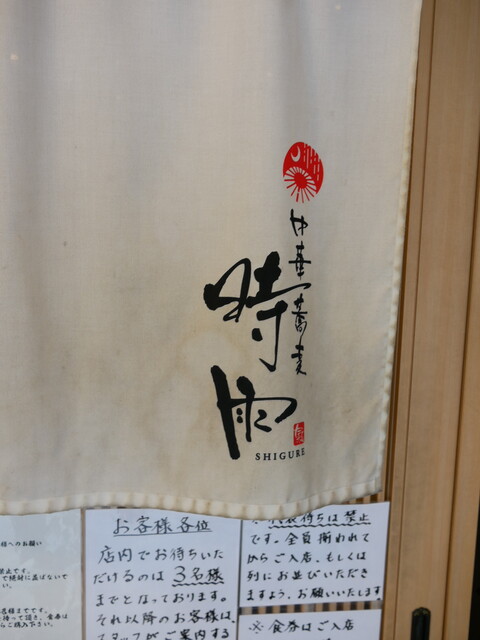 中華蕎麦
時雨
SHIGURE
お客様各位
店内でお待ちいた
だけるのは3名様
までとなっております。
それ以降のお客様は、
スタッフがご案内する
待ちは禁止
です。全員揃われて
からご入店、もしくは
列にお並びいただき
ますよう、お願いいたします
※食券はご入店
様へのお願い
禁止です。
名様までです。